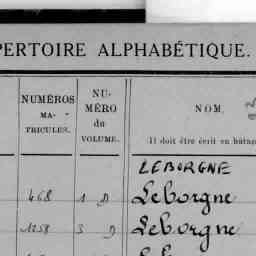 PERTOIRE ALPHABÉTIQUE.
NUMÉROS
MA-
TRICULES.
NU-
MÉRO
du
VOLUME.
NOM.
Il doit être écrit en bâta
LEBORGNE
468 1 D Leborgne
1258 3 D Leborgne